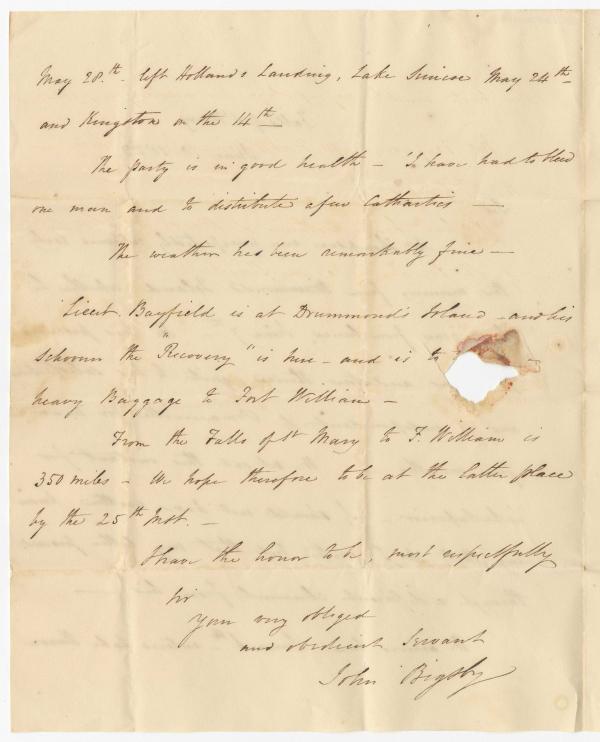 May 28.th left Hollands Landing, Lake Simcoe May 24th
and Kingston on the 14th
The party is in good health – I have had to bleed
one man and to distribute a few Cathartics —
The weather has been remarkably fine —
Lieut. Bayfield is at Drummond's Island – and his
schooner the "Recovery" is here – and is to
heavy Baggage to Fort William –
From the Falls of St Mary to F. William is
350 miles – We hope therefore to be at the latter place
by the 25th Inst. –
I have the honor to be, most respectfully
Sir
Your very obliged
and obedient Servant
John Bigsby